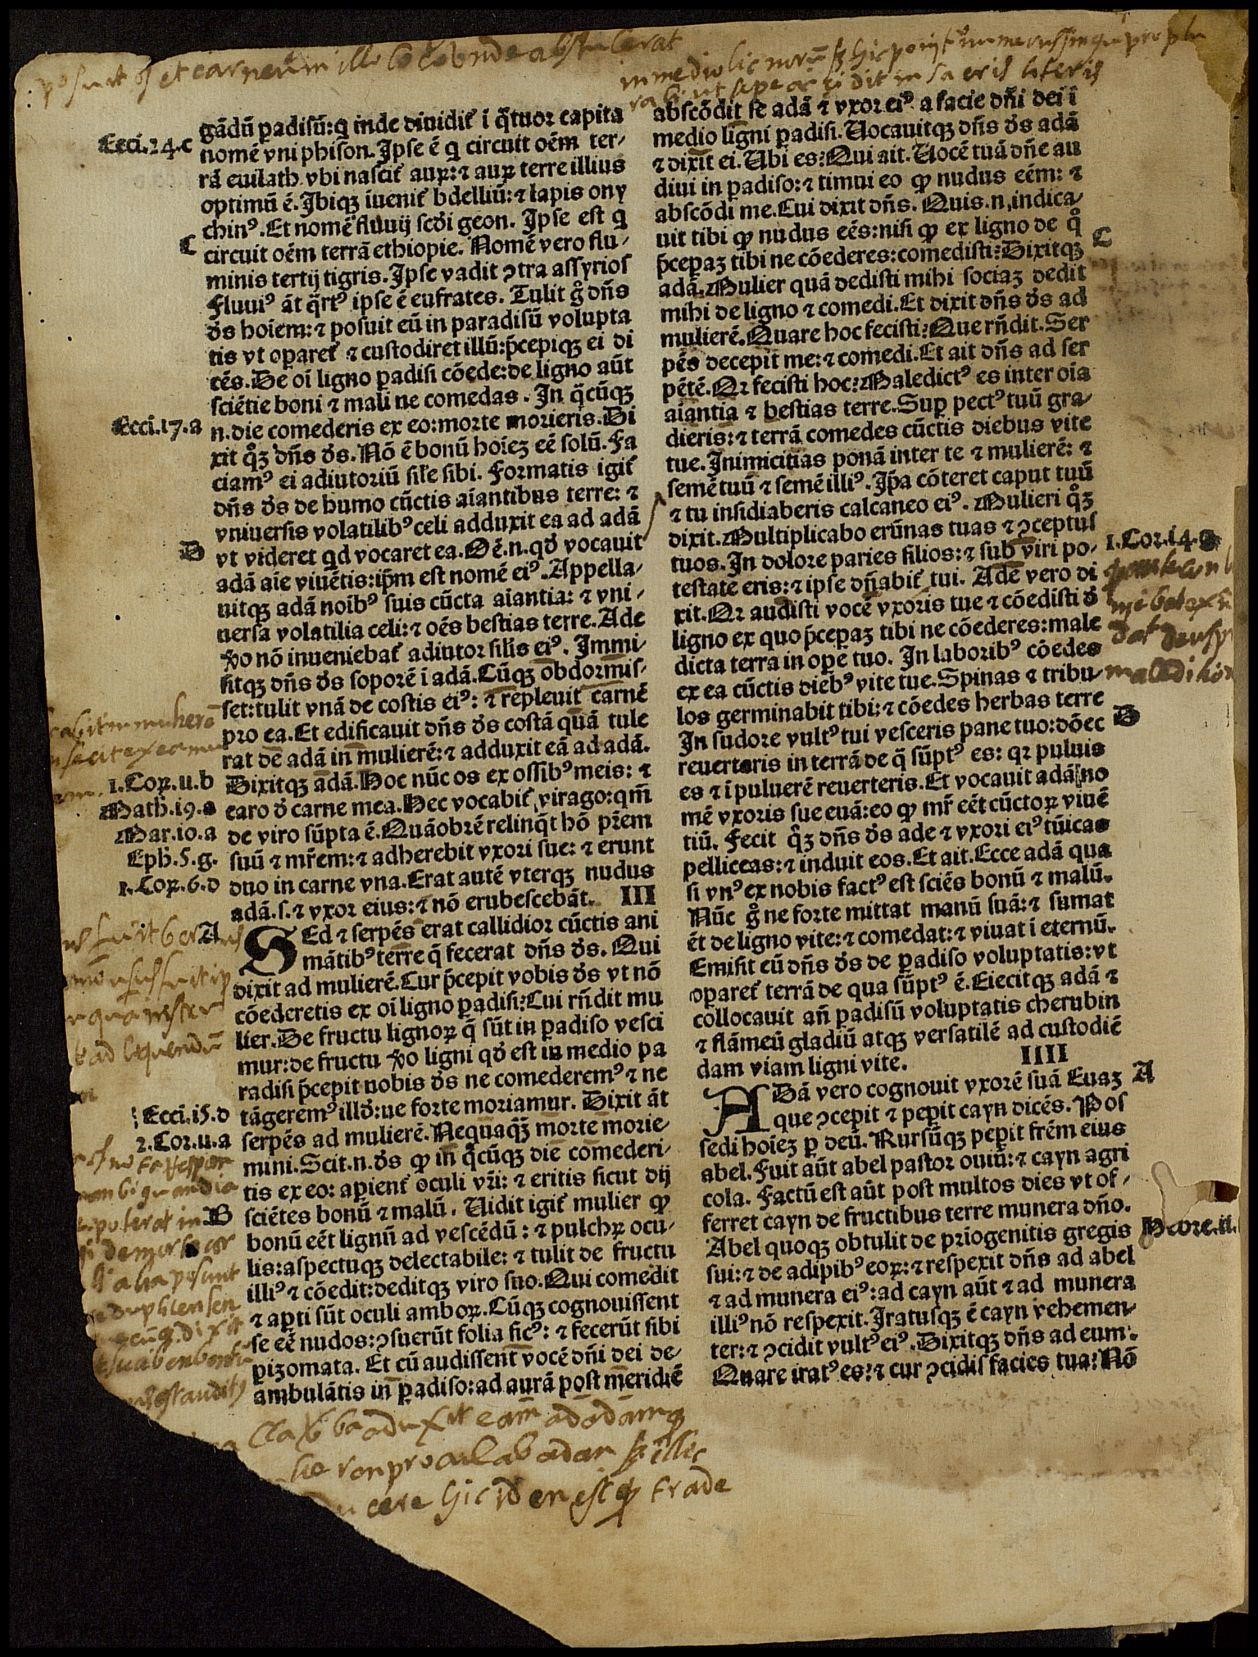 posuit et carnem in illo loco unde abstulerat
gādū padisū: q̄ inde diuidit̄ i q̄tuor capita
Ecci.24.c
nomē vni phison. Ipse ē q̄ circuit oēm ter-
rā euilath vbi nascit̄ auꝝ: ⁊ auꝝ terre illius
optimū ē. Ibiqꝫ iuenit̄ bdelliū: ⁊ lapis ony
chin⁹. Et nomē fluuij scd̄i geon. Ipse est q̄
C
circuit oēm terrā ethiopie. Nomē vero flu-
minis tertij tigris. Ipse vadit ꝯtra assyrios
Fluui⁹ āt q̄rt⁹ ipse ē eufrates. Tulit g̊ dn̄s
d̄s hoiem: ⁊ posuit eū in paradisū volupta
tis vt oparet̄ ⁊ custodiret illū: p̄cepiqꝫ ei di
cēs. De oī ligno padisi cōede: de ligno aūt
sciētie boni ⁊ mali ne comedas. In q̄cūqꝫ
Ecci.17.a
n. die comederis ex eo: morte morieris. Di
xit q̊ꝫ dn̄s d̄s. Nō ē bonū hoiez eē solū. Fa
ciam⁹ ei adiutoriū sil̄e sibi. Formatis igit̄
dn̄s d̄s de humo cūctis aiantibus terre: ⁊
vniuersis volatilib⁹ celi adduxit ea ad adā
D
vt videret qd vocaret ea. Oē. n. qd̄ vocauit
adā aīe viuētis: ip̄m est nomē ei⁹. Appella-
uitqꝫ adā noib⁹ suis cūcta aiantia: ⁊ vni-
uersa volatilia celi: ⁊ oēs bestias terre. Ade
ꝟo nō inueniebat̄ adiutor silis ei⁹. Immi-
sitqꝫ dn̄s d̄s soporē i adā. Cūqꝫ obdormis-
set: tulit vnā de costis ei⁹: ⁊ repleuit carnē
pro ea. Et edificauit dn̄s d̄s costā quā tule
rat de adā in mulierē: ⁊ adduxit eā ad adā.
1.Coꝝ.11.b
Dixitqꝫ adā. Hoc nūc os ex ossib⁹ meis: ⁊
Math.19.a
caro d̄ carne mea. Hec vocabit̄ virago: qm̄
Mar.10.a
de viro sūpta ē. Quāobrē relinq̄t hō pr̄em
Eph.5.g.
suū ⁊ mr̄em: ⁊ adherebit vxori sue: ⁊ erunt
1.Coꝝ.6.d
duo in carne vna. Erat autē vterqꝫ nudus
adā. s. ⁊ vxor eius: ⁊ nō erubescebāt. III
A
SEd ⁊ serpēs erat callidior cūctis ani
mātib⁹ terre q̄ fecerat dn̄s d̄s. Qui
dixit ad mulierē. Cur p̄cepit vobis d̄s vt nō
cōederetis ex oī ligno padisi? Cui rn̄dit mu
lier. De fructu lignoꝝ q̄ sūt in padiso vesci
mur: de fructu ꝟo ligni qd̄ est in medio pa
radisi p̄cepit nobis d̄s ne comederem⁹ ⁊ ne
Ecci.15.d
tāgerem⁹ illd̄: ne forte moriamur. Dixit āt
2.Cor.11.a
serpēs ad mulierē. Nequaqꝫ morte morie
mini. Scit. n. d̄s ꝙ in q̄cūqꝫ die comederi-
tis ex eo: apient̄ oculi vr̄i: ⁊ eritis sicut dij
B
sciētes bonū ⁊ malū. Vidit igit̄ mulier ꝙ
bonū eēt lignū ad vescēdū: ⁊ pulchꝝ ocu-
lis: aspectuqꝫ delectabile: ⁊ tulit de fructu
illi⁹ ⁊ cōedit: deditqꝫ viro suo. Qui comedit
⁊ apti sūt oculi amboꝝ. Cūqꝫ cognouissent
se eē nudos: ꝯsuerūt folia fic⁹: ⁊ fecerūt sibi
pizomata. Et cū audissent vocē dn̄i dei de-
ambulātis in padiso: ad aurā post meridiē
abscōdit se adā ⁊ vxor ei⁹ a facie dn̄i dei i
medio ligni padisi. Vocauitqꝫ dn̄s d̄s adā
⁊ dixit ei. Vbi es? Qui ait. Vocē tuā dn̄e au
diui in padiso: ⁊ timui eo ꝙ nudus eēm: ⁊
abscōdi me. Cui dixit dn̄s. Quis. n. indica-
uit tibi ꝙ nudus eēs: nisi ꝙ ex ligno de q̊
C
p̄cepaꝫ tibi ne cōederes: comedisti? Dixitqꝫ
adā. Mulier quā dedisti mihi sociaꝫ dedit
mihi de ligno ⁊ comedi. Et dixit dn̄s d̄s ad
mulierē. Quare hoc fecisti? Que rn̄dit. Ser
pēs decepit me: ⁊ comedi. Et ait dn̄s ad ser
pētē. Qꝛ fecisti hoc: Maledict⁹ es inter oīa
aiantia ⁊ bestias terre. Sup pect⁹ tuū gra-
dieris: ⁊ terrā comedes cūctis diebus vite
tue. Inimicitias ponā inter te ⁊ mulierē: ⁊
semē tuū ⁊ semē illi⁹. Ip̄a cōteret caput tuū
⁊ tu insidiaberis calcaneo ei⁹. Mulieri q̊ꝫ
dixit. Multiplicabo erūnas tuas ⁊ ꝯceptus
1.Cor.14.g
tuos. In dolore paries filios: ⁊ sub viri po-
testate eris: ⁊ ipse dn̄abit̄ tui. Ade vero di
xit. Qꝛ audisti vocē vxoris tue ⁊ cōedisti d̄
ligno ex quo p̄cepaꝫ tibi ne cōederes: male
dicta terra in ope tuo. In laborib⁹ cōedes
ex ea cūctis dieb⁹ vite tue. Spinas ⁊ tribu-
los germinabit tibi: ⁊ cōedes herbas terre
D
In sudore vult⁹ tui vesceris pane tuo: dōec
reuertaris in terrā de q̄ sūpt⁹ es: qꝛ puluis
es ⁊ i puluerē reuerteris. Et vocauit adā no
mē vxoris sue euā: eo ꝙ mr̄ eēt cūctoꝝ viuē
tiū. Fecit q̊ꝫ dn̄s d̄s ade ⁊ vxori ei⁹ tūicas
pelliceas: ⁊ induit eos. Et ait. Ecce adā qua
si vn⁹ ex nobis fact⁹ est sciēs bonū ⁊ malū.
Nūc g̊ ne forte mittat manū suā: ⁊ sumat
ēt de ligno vite: ⁊ comedat: ⁊ viuat i eternū.
Emisit eū dn̄s d̄s de padiso voluptatis: vt
oparet̄ terrā de qua sūpt⁹ ē. Eiecitqꝫ adā ⁊
collocauit an̄ padisū voluptatis cherubin
⁊ flāmeū gladiū atqꝫ versatilē ad custodiē
dam viam ligni vite. IIII
ADā vero cognouit vxorē suā Euaꝫ A
que ꝯcepit ⁊ pepit cayn dicēs. Pos
sedi hoieꝫ p deū. Rursūqꝫ pepit fr̄em eius
abel. Fuit aūt abel pastor ouiū: ⁊ cayn agri
cola. Factū est aūt post multos dies vt of-
ferret cayn de fructibus terre munera dn̄o.
Abel quoqꝫ obtulit de priogenitis gregis
Heore.11.
sui: ⁊ de adipib⁹ eoꝝ: ⁊ respexit dn̄s ad abel
⁊ ad munera ei⁹: ad cayn aūt ⁊ ad munera
illi⁹ nō respexit. Iratusqꝫ ē cayn vehemen-
ter: ⁊ ꝯcidit vult⁹ ei⁹. Dixitqꝫ dn̄s ad eum.
Quare irat⁹ es: ⁊ cur ꝯcidis facies tua? Nō